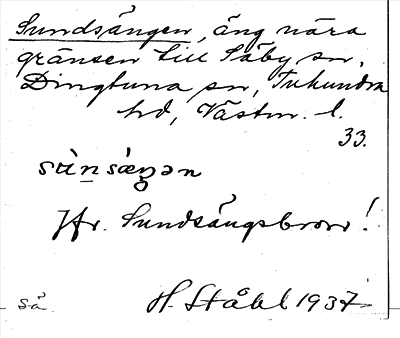 Sundsängen, äng nära
gränsen till Säby sn,
Dingtuna sn, Tuhundra
hd, Västm. l.
33.
sùn̠sæŋən
Jfr. Sundsängsbron!
så H. Ståhl 1937